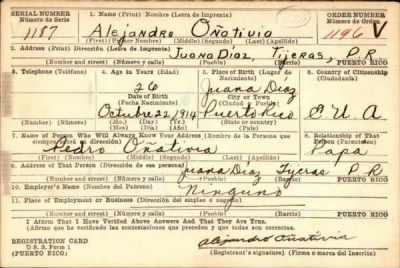 SERIAL NUMBER
Número de Serie
1187
1. Name (Print) Nombre (Letra de Imprenta)
Alejandro Oñativia
(First) (Primer nombre) (Middle) (Segundo) (Last) (Apellido)
ORDER NUMBER
Número de Orden
1196 V
2. Address (Print) Dirección (Letra de Imprenta)
Juana Díaz, Tijeras, P.R
(Number and street) (Número y calle) (Town) (Pueblo) (Barrio) PUERTO RICO
3. Telephone (Teléfono)
4. Age in Years (Edad)
26
Date of Birth
(Fecha Nacimiento)
Octubre 22, 1914
(Mo.) (Day) (Yr.)
(Mes) (Día) (Año)
5. Place of Birth (Lugar de Nacimiento)
Juana Díaz
City or Town
(Ciudad o Pueblo)
Puerto Rico
(State or country)
6. Country of Citizenship
(Ciudadanía)
E.U.A
7. Name of Person Who Will Always Know Your Address (Nombre de la Persona que siempre sabrá su dirección)
Pedro Oñativia
(First) (Primer nombre) (Middle) (Segundo) (Last) (Apellido)
8. Relationship of That Person (Parentesco)
Papa
9. Address of That Person (Dirección de esa persona)
Juana Diaz Tijeras P.R
(Number and street) (Número y calle) (Town) (Pueblo) (Barrio) PUERTO RICO
10. Employer's Name (Nombre del Patrono)
Ninguno
11. Place of Employment or Business (Dirección del empleo o negocio)
(Number and street) (Número y calle) (Town) (Pueblo) (Barrio) PUERTO RICO
I Affirm That I Have Verified Above Answers And That They Are True.
(Afirmo que he verificado las contestaciones que preceden y que todas son ciertas).
REGISTRATION CARD
D. S. S. Form 1
(PUERTO RICO)
Alejandro Oñativia
(Registrant's signature) (Firma o marca del Inscrito)